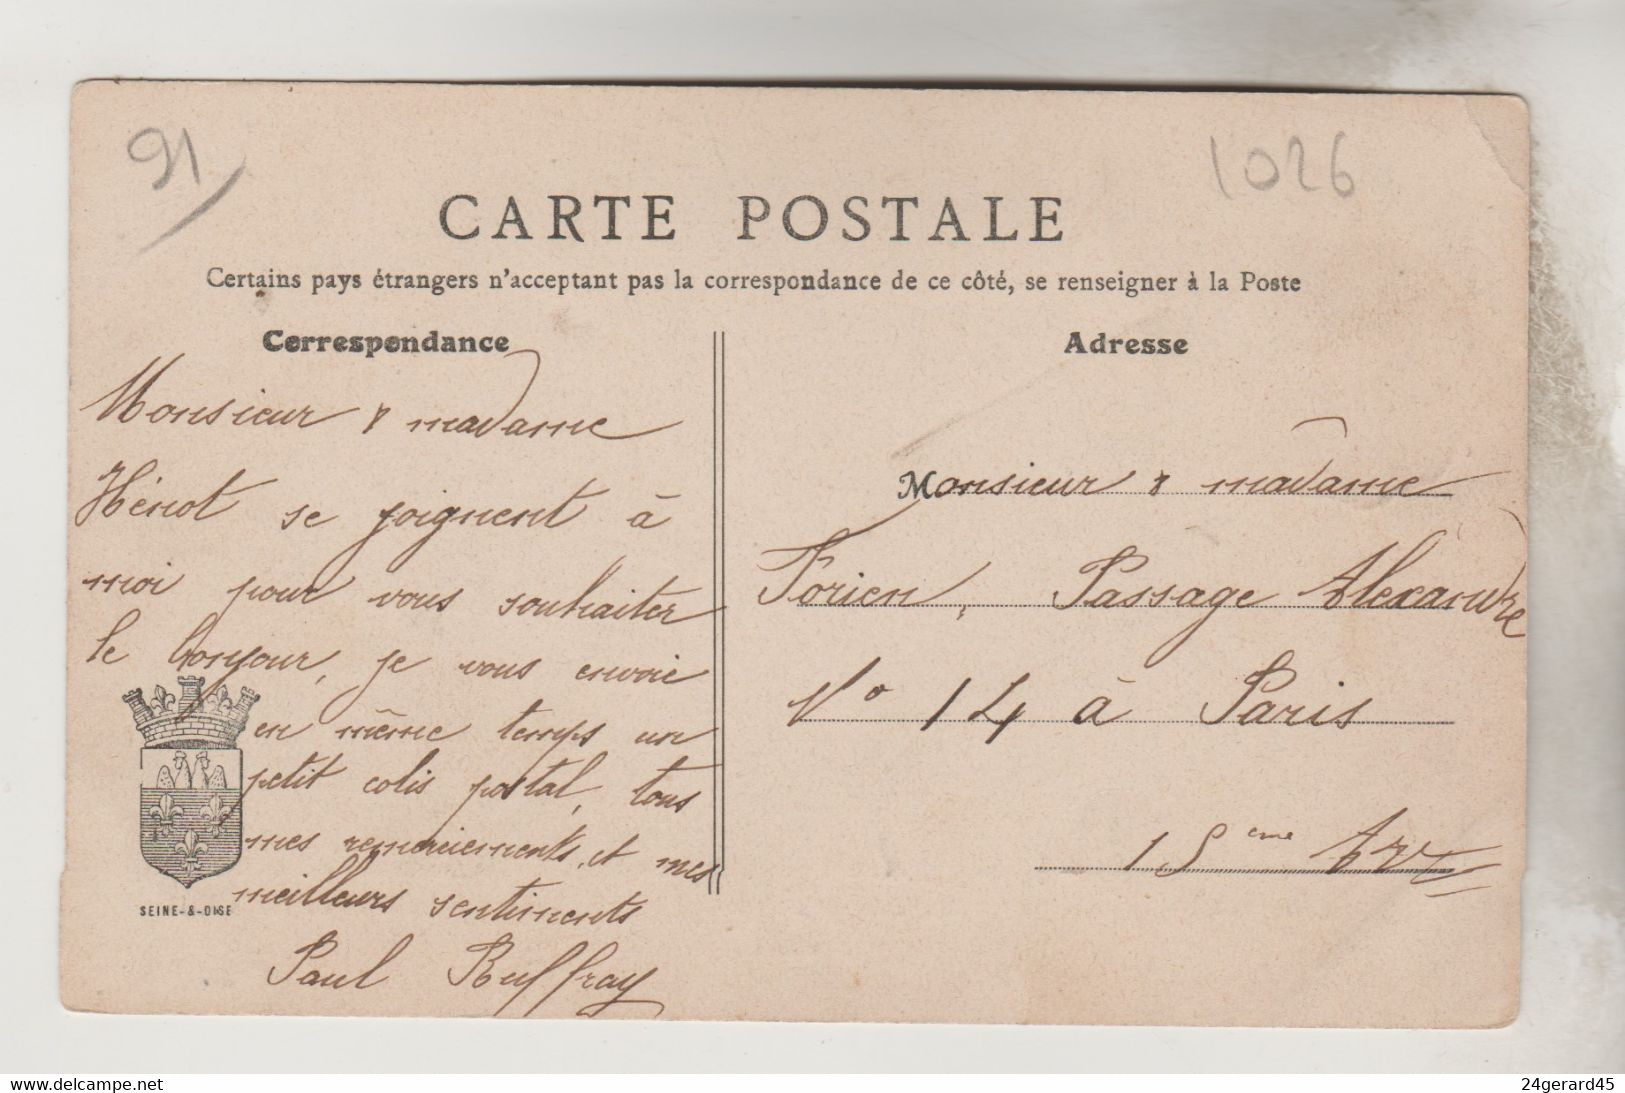 91
1026
CARTE POSTALE
Certains pays étrangers n'acceptant pas la correspondance de ce côté, se renseigner à la Poste
Correspondance
Monsieur & madame
Hénot se joignent à
moi pour vous souhaiter
le bonjour, je vous envoie
en même temps un
petit colis postal, tous
mes remerciements, et mes
meilleurs sentiments
Paul Ruffray
SEINE-&-OISE
Adresse
Monsieur & madame
Forien, Passage Alexandre
No 14 à Paris
15eme Arrt
www.delcampe.net
24gerard45